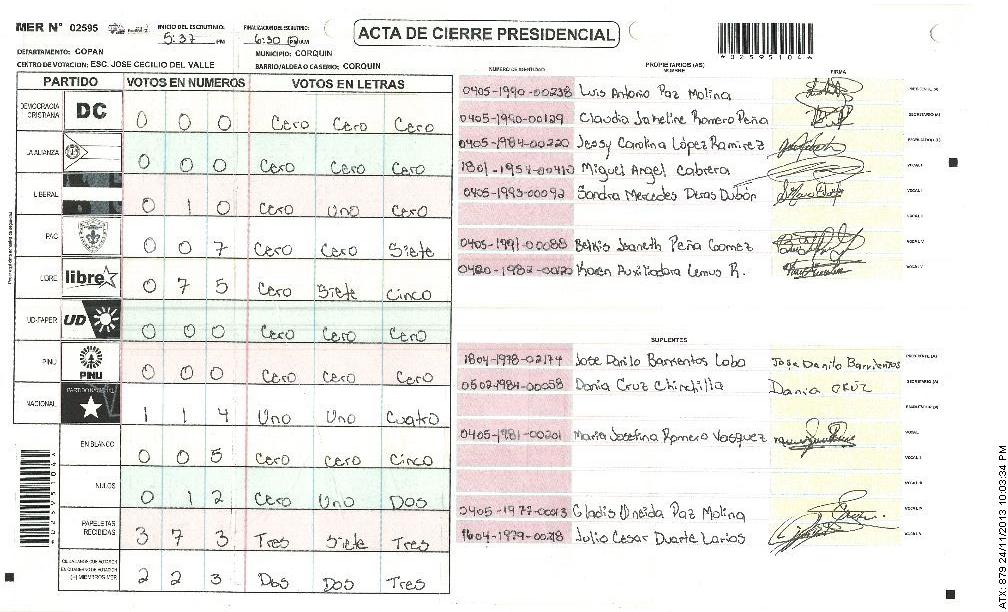 MER N° 02595
INICIO DEL ESCRUTINIO:
5:37 PM
FINALIZACION DEL ESCRUTINIO:
6:30 PM/AM
ACTA DE CIERRE PRESIDENCIAL
DEPARTAMENTO: COPAN
MUNICIPIO: CORQUIN
CENTRO DE VOTACION: ESC. JOSE CECILIO DEL VALLE
BARRIO/ALDEA O CASERIO: CORQUIN
PARTIDO VOTOS EN NUMEROS VOTOS EN LETRAS
DEMOCRACIA CRISTIANA DC 0 0 0 Cero Cero Cero
LA ALIANZA 0 0 0 Cero Cero Cero
LIBERAL 0 1 0 Cero Uno Cero
PAC 0 0 7 Cero Cero Siete
LIBRE libre 0 7 5 Cero Siete Cinco
UD-FAPER UD 0 0 0 Cero Cero Cero
PINU PINU 0 0 0 Cero Cero Cero
NACIONAL 1 1 4 Uno Uno Cuatro
EN BLANCO 0 0 5 Cero Cero Cinco
NULOS 0 1 2 Cero Uno Dos
PAPELETAS RECIBIDAS 3 7 3 Tres Siete Tres
2 2 3 Dos Dos Tres
NUMERO DE IDENTIDAD
PROPIETARIOS (AS)
NOMBRE
FIRMA
0405-1990-00238 Luis Antonio Paz Molina
0405-1990-00129 Claudia Jakeline Romero Peña
0405-1984-00220 Jessy Carolina López Ramirez
1801-1954-00410 Miguel Angel Cabrera
0405-1993-00092 Sandra Mercedes Deras Dubón
0405-1991-00088 Belkis Jeaneth Peña Gomez
0420-1982-00120 Karen Auxiliadora Lemus R.
SUPLENTES
1804-1978-02174 Jose Danilo Barrientos Lobo Jose Danilo Barrientos
0502-1984-00058 Dania Cruz Chinchilla Dania CRUZ
0405-1981-00201 Maria Josefina Romero Vasquez
0405-1977-00013 Gladis Oneida Paz Molina
1604-1979-00218 Julio Cesar Duarte Larios
ATX: 879 24/11/2013 10:03:34 PM